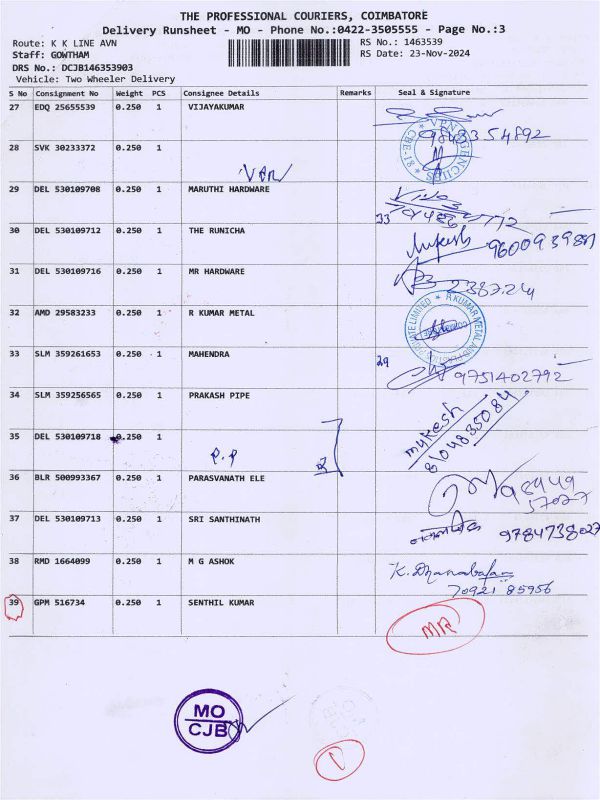 THE PROFESSIONAL COURIERS, COIMBATORE
Delivery Runsheet - MO - Phone No.:0422-3505555 - Page No.:3
Route: K K LINE AVN
RS No.: 1463539
Staff: GOWTHAM
RS Date: 23-Nov-2024
DRS No.: DCJB146353903
Vehicle: Two Wheeler Delivery
S No Consignment No Weight PCS Consignee Details Remarks Seal & Signature
27 EDQ 25655539 0.250 1 VIJAYAKUMAR
9843354892
28 SVK 30233372 0.250 1
VPN
29 DEL 530109708 0.250 1 MARUTHI HARDWARE
33
30 DEL 530109712 0.250 1 THE RUNICHA
Mukesh
31 DEL 530109716 0.250 1 MR HARDWARE
32 AMD 29583233 0.250 1 R KUMAR METAL
33 SLM 359261653 0.250 1 MAHENDRA
29
9751402792
34 SLM 359256565 0.250 1 PRAKASH PIPE
mukesh
8104835084
35 DEL 530109718 0.250 1
P.P
36 BLR 500993367 0.250 1 PARASVANATH ELE
37 DEL 530109713 0.250 1 SRI SANTHINATH
9784738027
38 RMD 1664099 0.250 1 M G ASHOK
K. Dhanabalan
70921 85956
39 GPM 516734 0.250 1 SENTHIL KUMAR
MR
MO
CJB